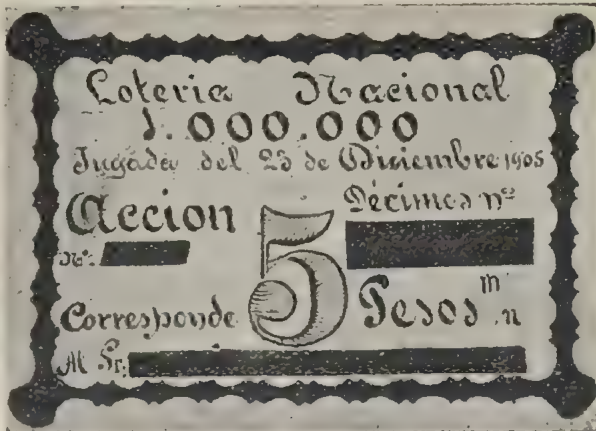 Loteria Nacional
1.000.000
Jugada del 23 de Diciembre 1905
Accion
Décimos nos
No.
5
Corresponde Pesos m.n
Al Sr.